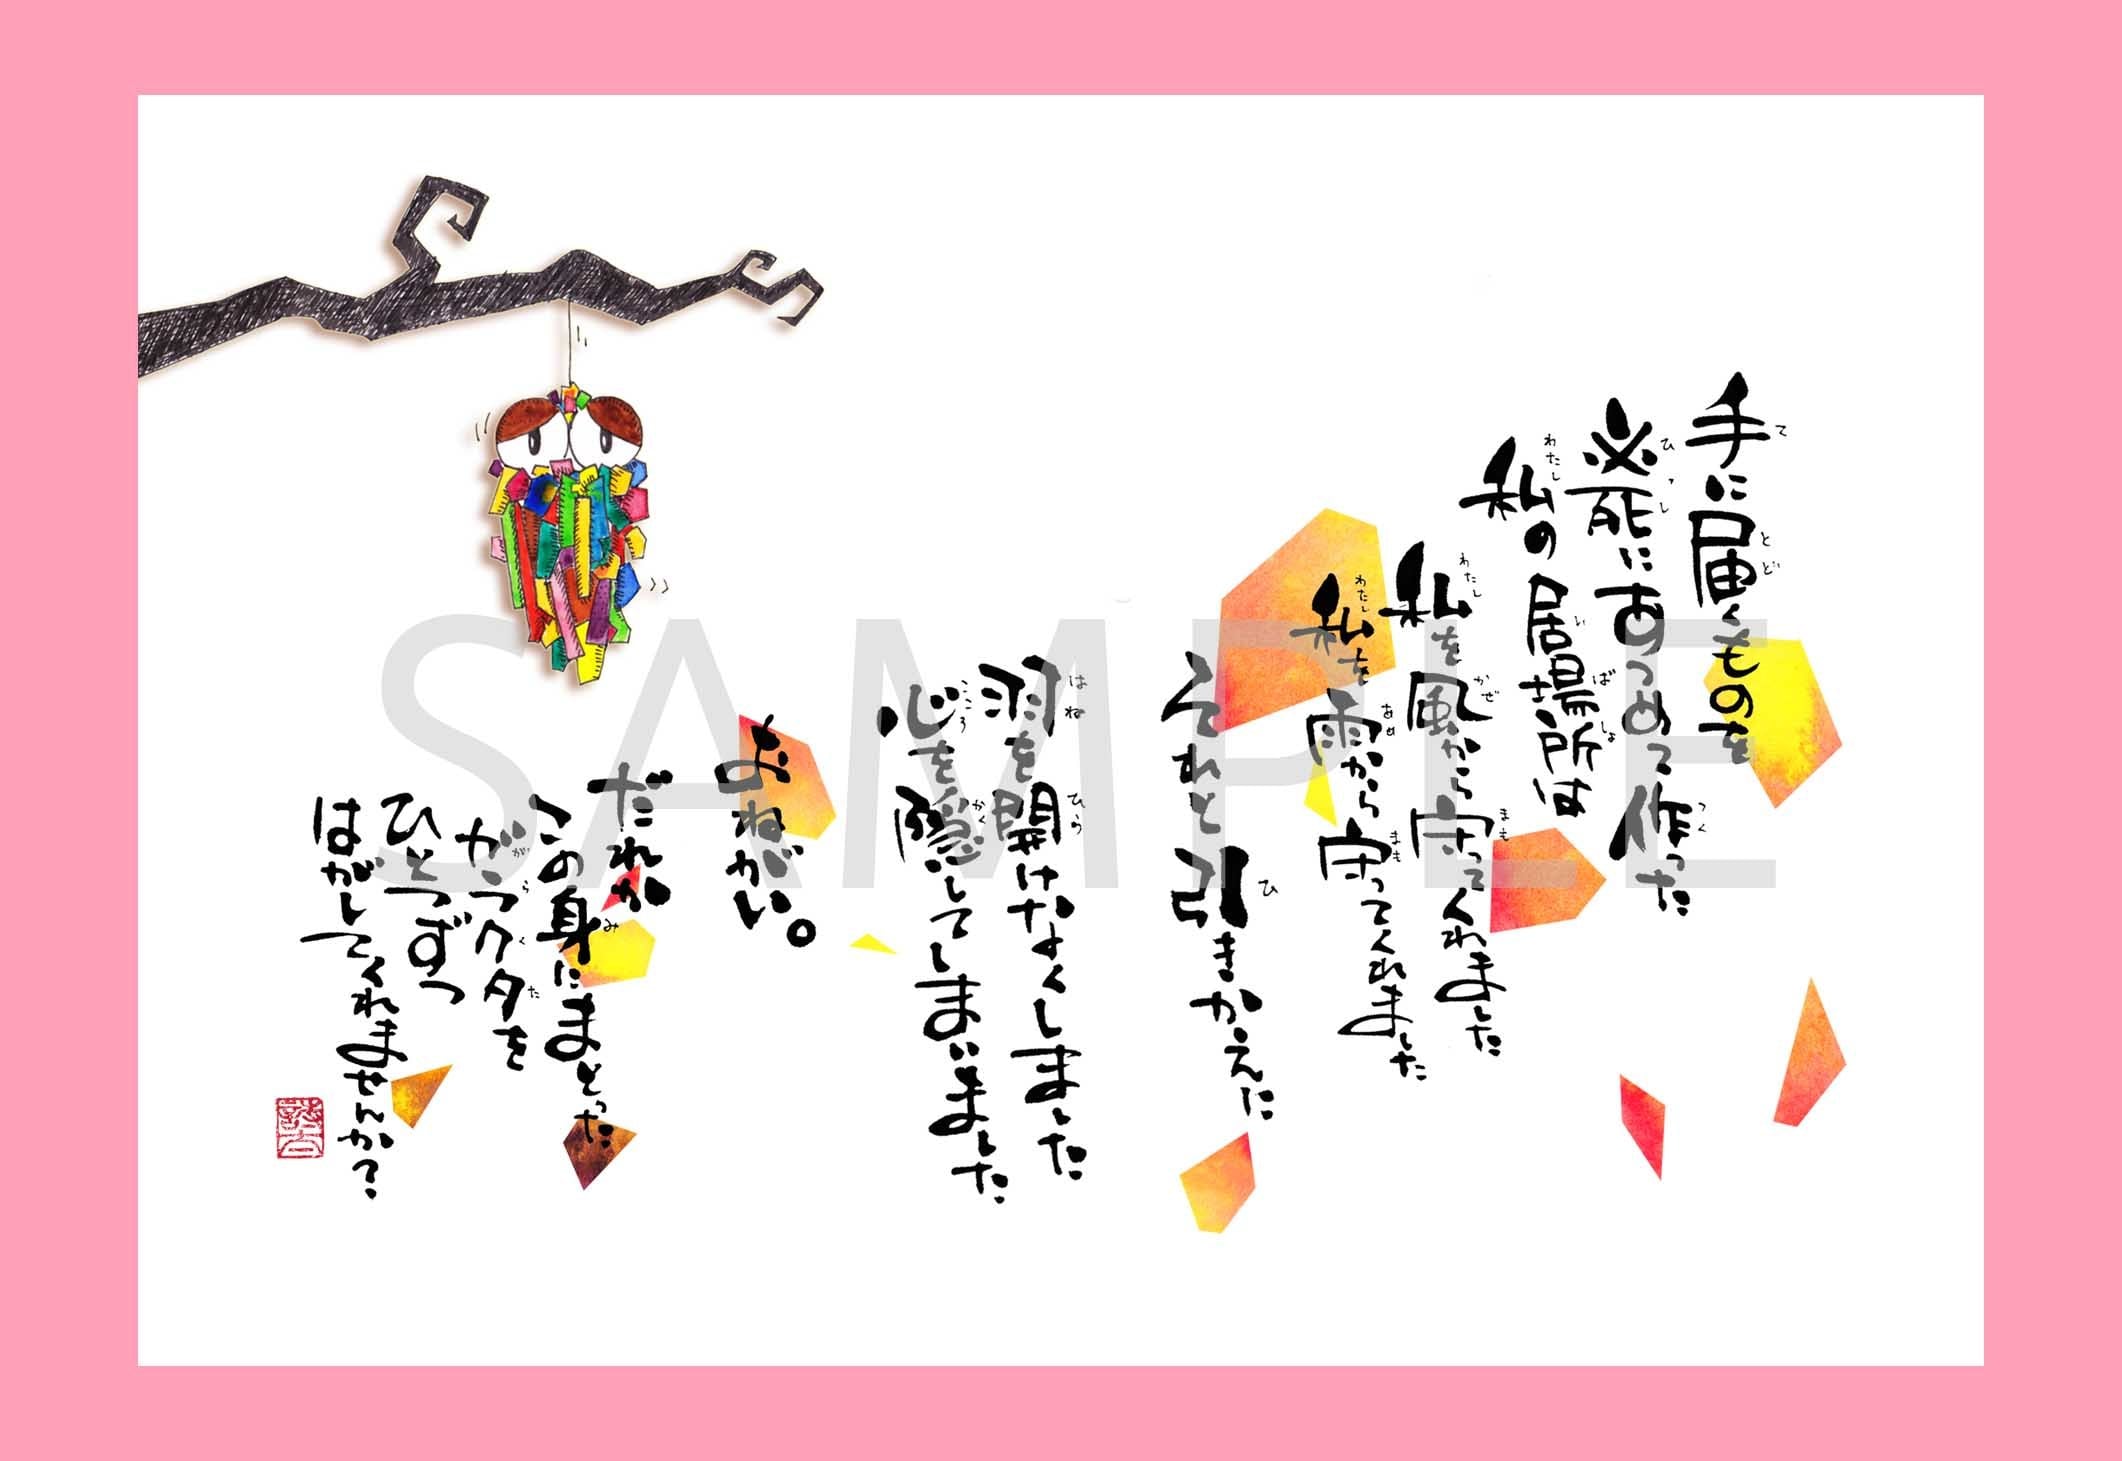 手に届くものを
必死にあつめて作った
私の居場所は
私を風から守ってくれました
私を雨から守ってくれました
それと引きかえに
羽を開けなくしました
心を隠してしまいました
おねがい。
だれか
この身にまとった
ガラクタを
ひとつずつ
はがしてくれませんか?
SAMPLE